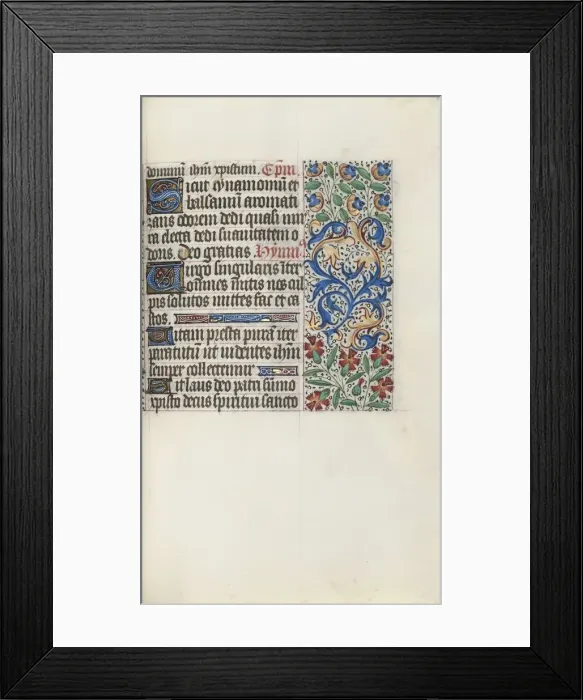 dominū ihm̄ xpistum. Cpm̄.
Sicut cynamomū et
balsamū aromati
zans odorem dedi quasi mir
ra electa dedi suauitatem o
doris. Deo gratias. Hymn⁹
Virgo singularis īter
omnes mitis nos cul
pis solutos mittes fac et ca
stos.
Vitam presta purā iter
para tutum ut uidentes ihm̄
semper collectemur
Sit laus deo patri sūmo
xpisto decus spiritui sancto